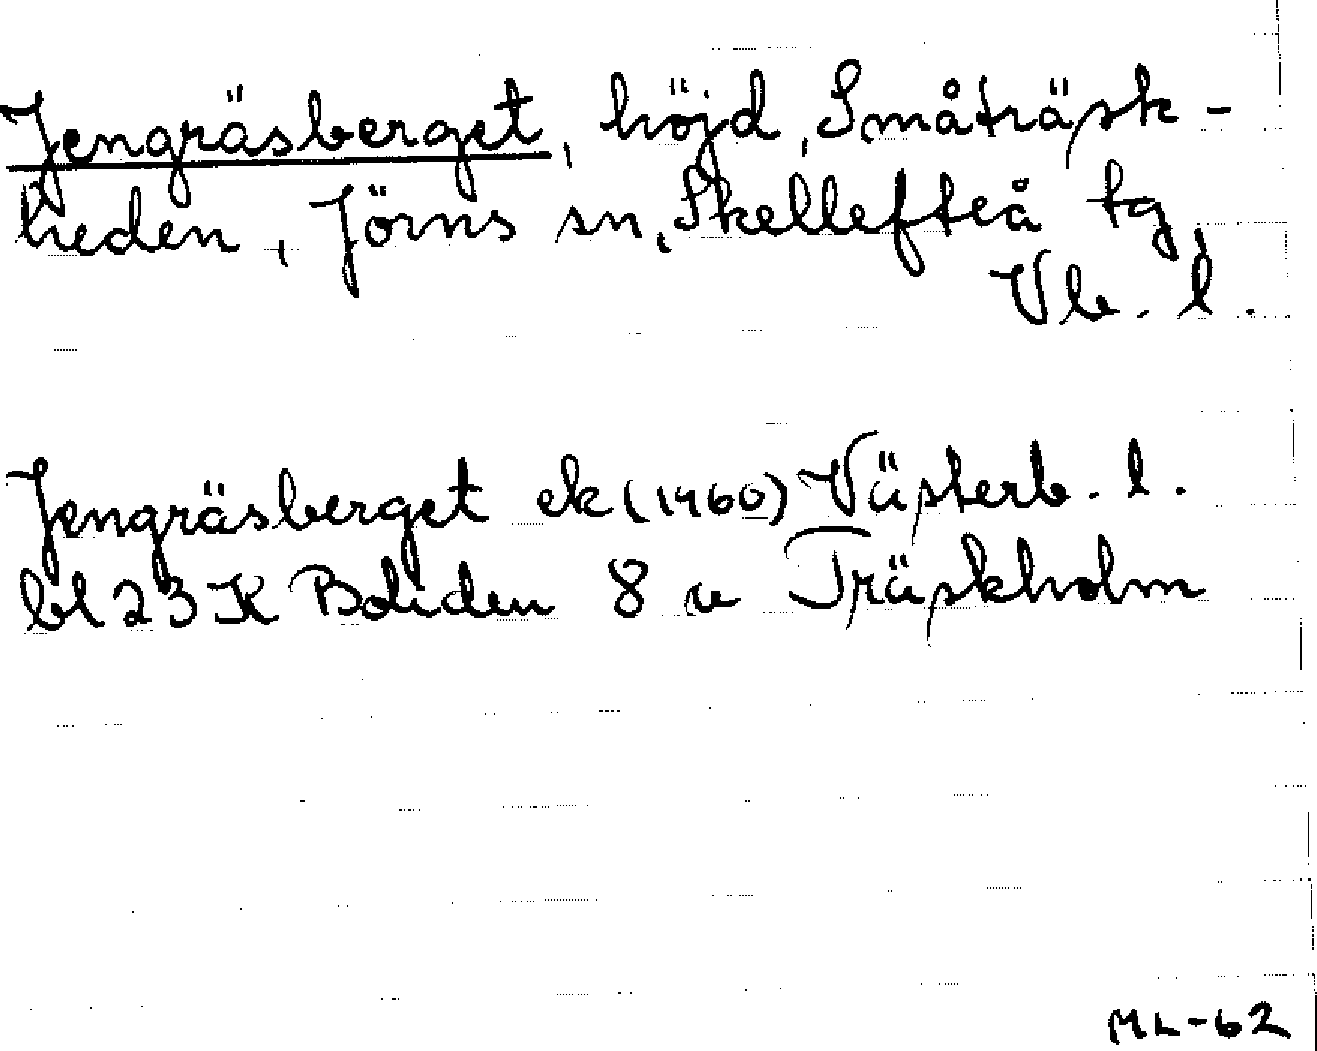 Jengräsberget, höjd, Småträsk-
heden, Jörns sn, Skellefteå tg,
Vb. l.
Jengräsberget ek (1960) Västerb. l.
bl 23 K Boliden 8 v Träskholm
ML-62